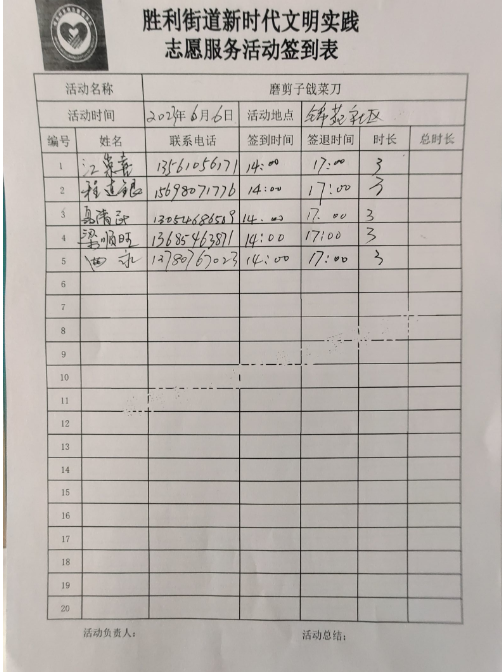 胜利街道新时代文明实践
志愿服务活动签到表
活动名称 磨剪子戗菜刀
活动时间 2023年6月6日 活动地点 锦苑社区
编号 姓名 联系电话 签到时间 签退时间 时长 总时长
1 13561056171 14:00 17:00 3
2 程建银 15698071776 14:00 17:00 3
3 13054686519 14:00 17:00 3
4 梁顺旺 13685463871 14:00 17:00 3
5 13780767023 14:00 17:00 3
6
7
8
9
10
11
12
13
14
15
16
17
18
19
20
活动负责人: 活动总结: